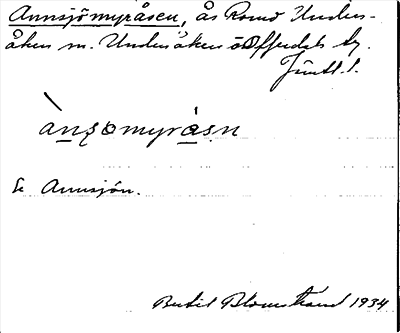 Annsjömyråsen, ås Romo Unders-
åkers sn. Undersåkers o Offerdals tg.
Jämtl. l.
ànʂomyråsn
Se Annsjön.
Bertil Blomstrand 1934